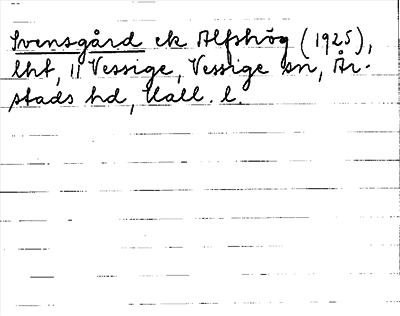 Svensgård ek Alfshög (1925),
lht, 11 Vessige, Vessige sn, År-
stads hd, Hall. l.